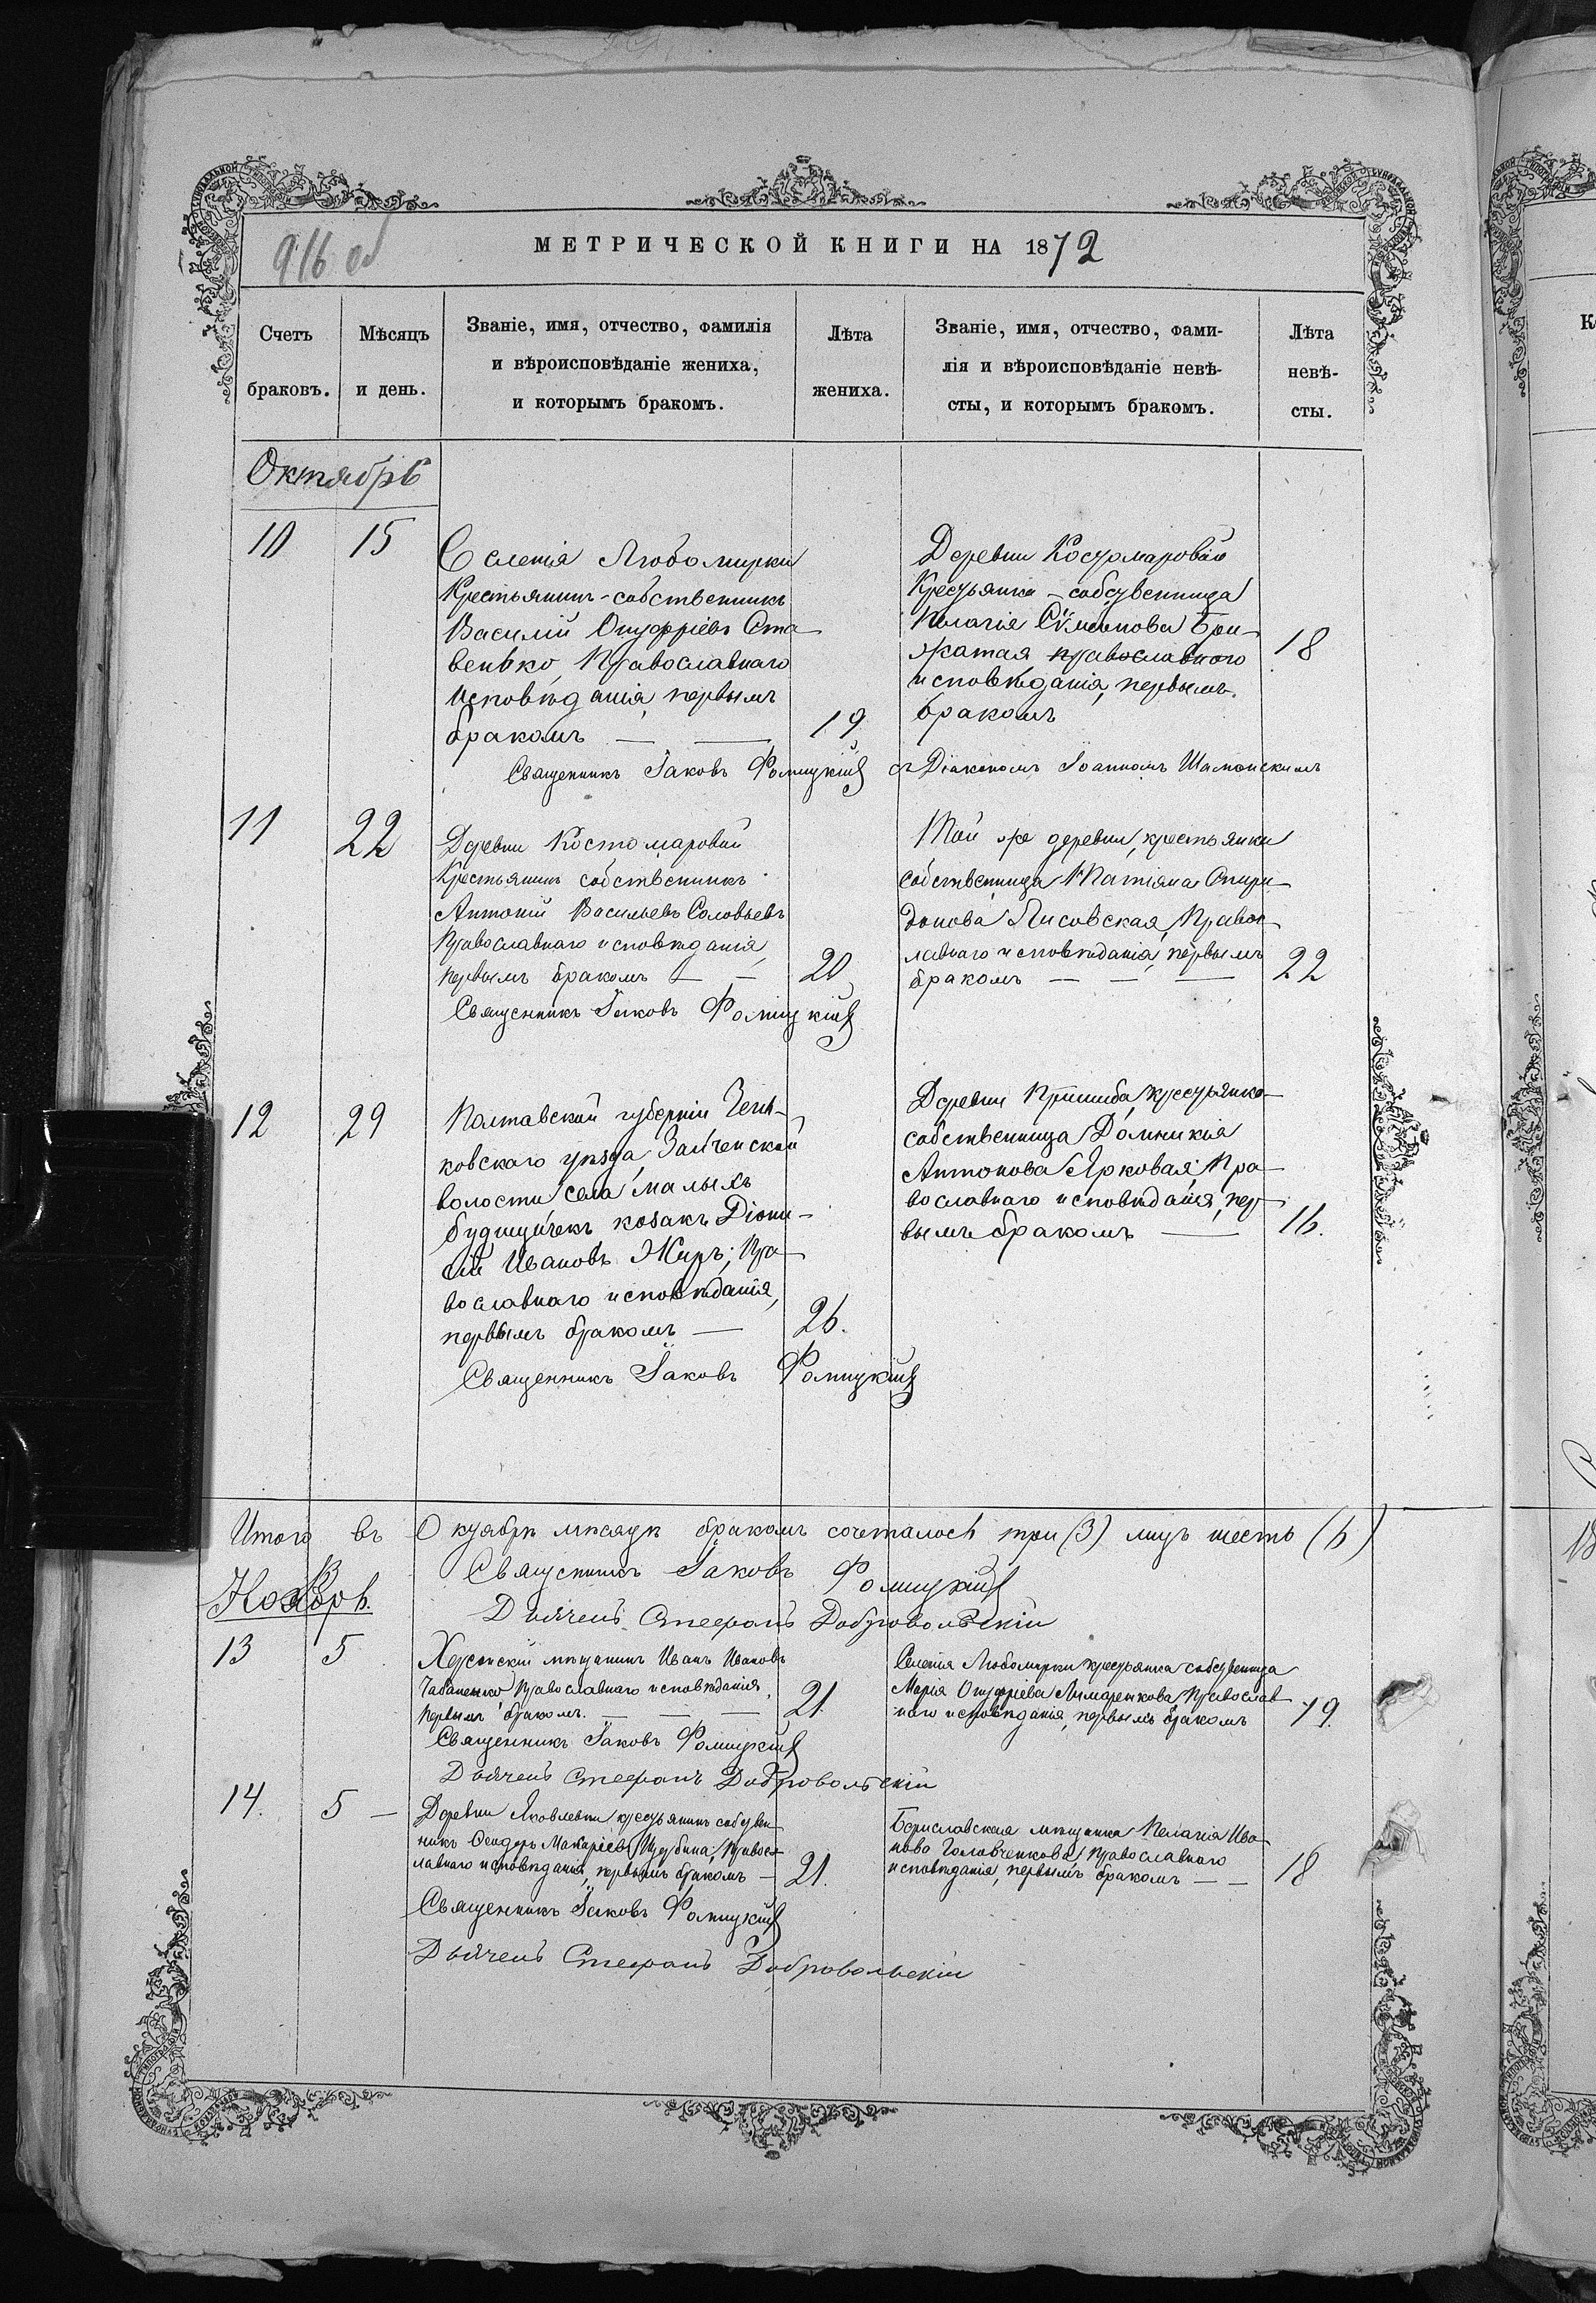 916 об
МЕТРИЧЕСКОЙ КНИГИ НА 1872
Счетъ браковъ.
Мѣсяцъ и день.
Званіе, имя, отчество, фамилія
и вѣроисповѣданіе жениха,
и которымъ бракомъ.
Лѣта жениха.
Званіе, имя, отчество, фами-
лія и вѣроисповѣданіе невѣ-
сты, и которымъ бракомъ.
Лѣта невѣ-
сты.
Октябрь
10 15
Селенія Любомирки
Крестьянинъ-собственникъ
Василій Онуфріевъ Ста-
венько, Православнаго
исповѣданія, первымъ
бракомъ — — 19
Деревни Костомаровой
Крестьянка-собственница
Пелагія Сѵмеонова Бри-
жатая православного 18
исповѣданія, первымъ
бракомъ
Священникъ Іаковъ Фомицкій съ Діакономъ Іоанномъ Шиманскимъ
11 22
Деревни Костомаровой
Крестьянинъ собственникъ
Антоній Васильевъ Соловьевъ
Православнаго исповѣданія,
первымъ бракомъ — — 20
Той же деревни, крестьянка
собственница Татіяна Спири-
донова Лисовская, Правос-
лавнаго исповѣданія, первымъ
бракомъ — — — 22
Священникъ Іаковъ Фомицкій
12 29
Полтавской губерніи Зень-
ковскаго уѣзда, Заиченской
волости села Малыхъ
будищичекъ козакъ Діони-
сій Ивановъ Жиръ; Пра-
вославнаго исповѣданія,
первымъ бракомъ — 26.
Деревни Пришиба, крестьянка-
собственница Домникія
Антонова Ярковая; Пра-
вославнаго исповѣданія, пер-
вымъ бракомъ — 16.
Священникъ Іаковъ Фомицкій
Итого въ Октябрѣ мѣсяцѣ бракомъ сочеталось три (3) лицъ шесть (6)
Священникъ Іаковъ Фомицкій
Ноябрь.
Дьячекъ Стефанъ Добровольскій
13 5
Херсонскій мѣщанинъ Иванъ Ивановъ
Чабаненко, Православнаго исповѣданія,
первымъ бракомъ. — — — 21.
Селенія Любомирки крестьянка собственница
Марія Онуфріева Лимаренкова, Православ-
наго исповѣданія, первымъ бракомъ 19.
Священникъ Іаковъ Фомицкій
Дьячекъ Стефанъ Добровольскій
14. 5 —
Деревни Яковлевки крестьянинъ собствен-
никъ Ѳеодоръ Макаріевъ Щербина; Правос-
лавнаго исповѣданія, первымъ бракомъ — 21.
Бериславская мѣщанка Пелагія Ива-
нова Головченкова, Православнаго
исповѣданія, первымъ бракомъ — — 18
Священникъ Іаковъ Фомицкій
Дьячекъ Стефанъ Добровольскій